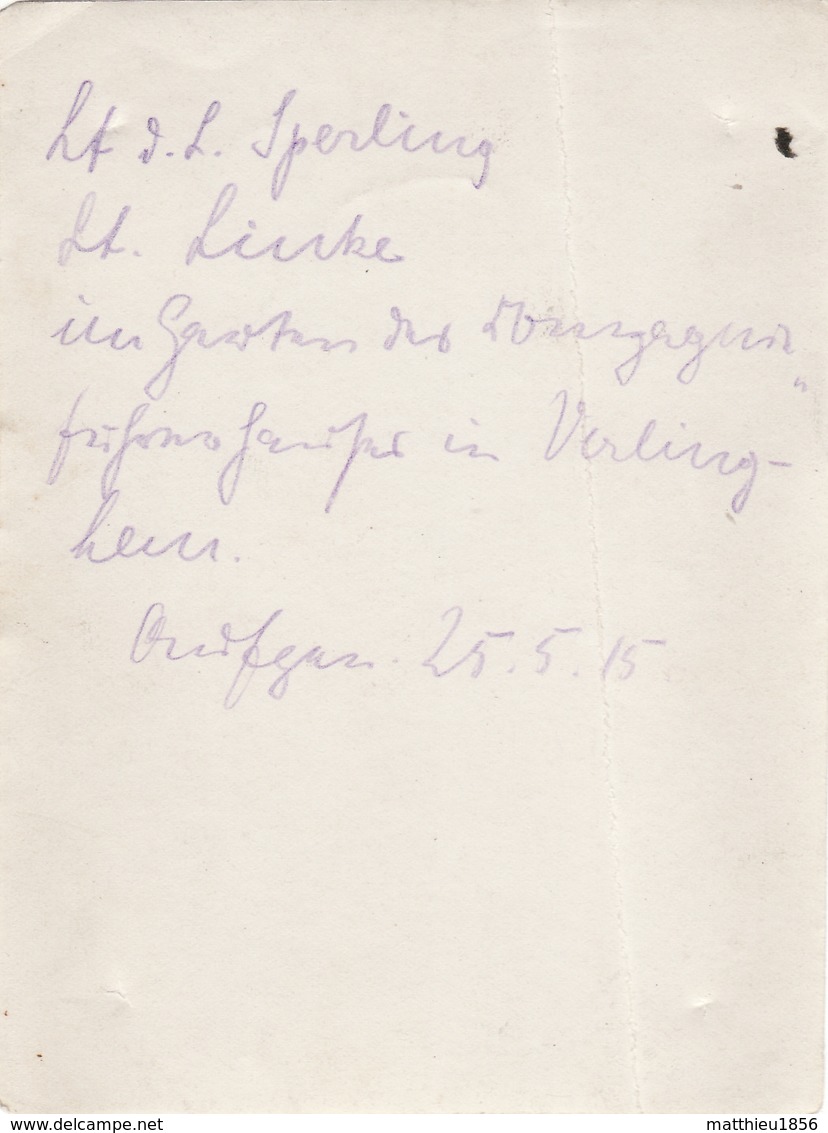 Lt d. L. Sperling
Lt. Linke
im Garten des Kompagnie„
führerhauses in Verling-
hem.
Aufgen. 25.5.15
www.delcampe.net
matthieu1856